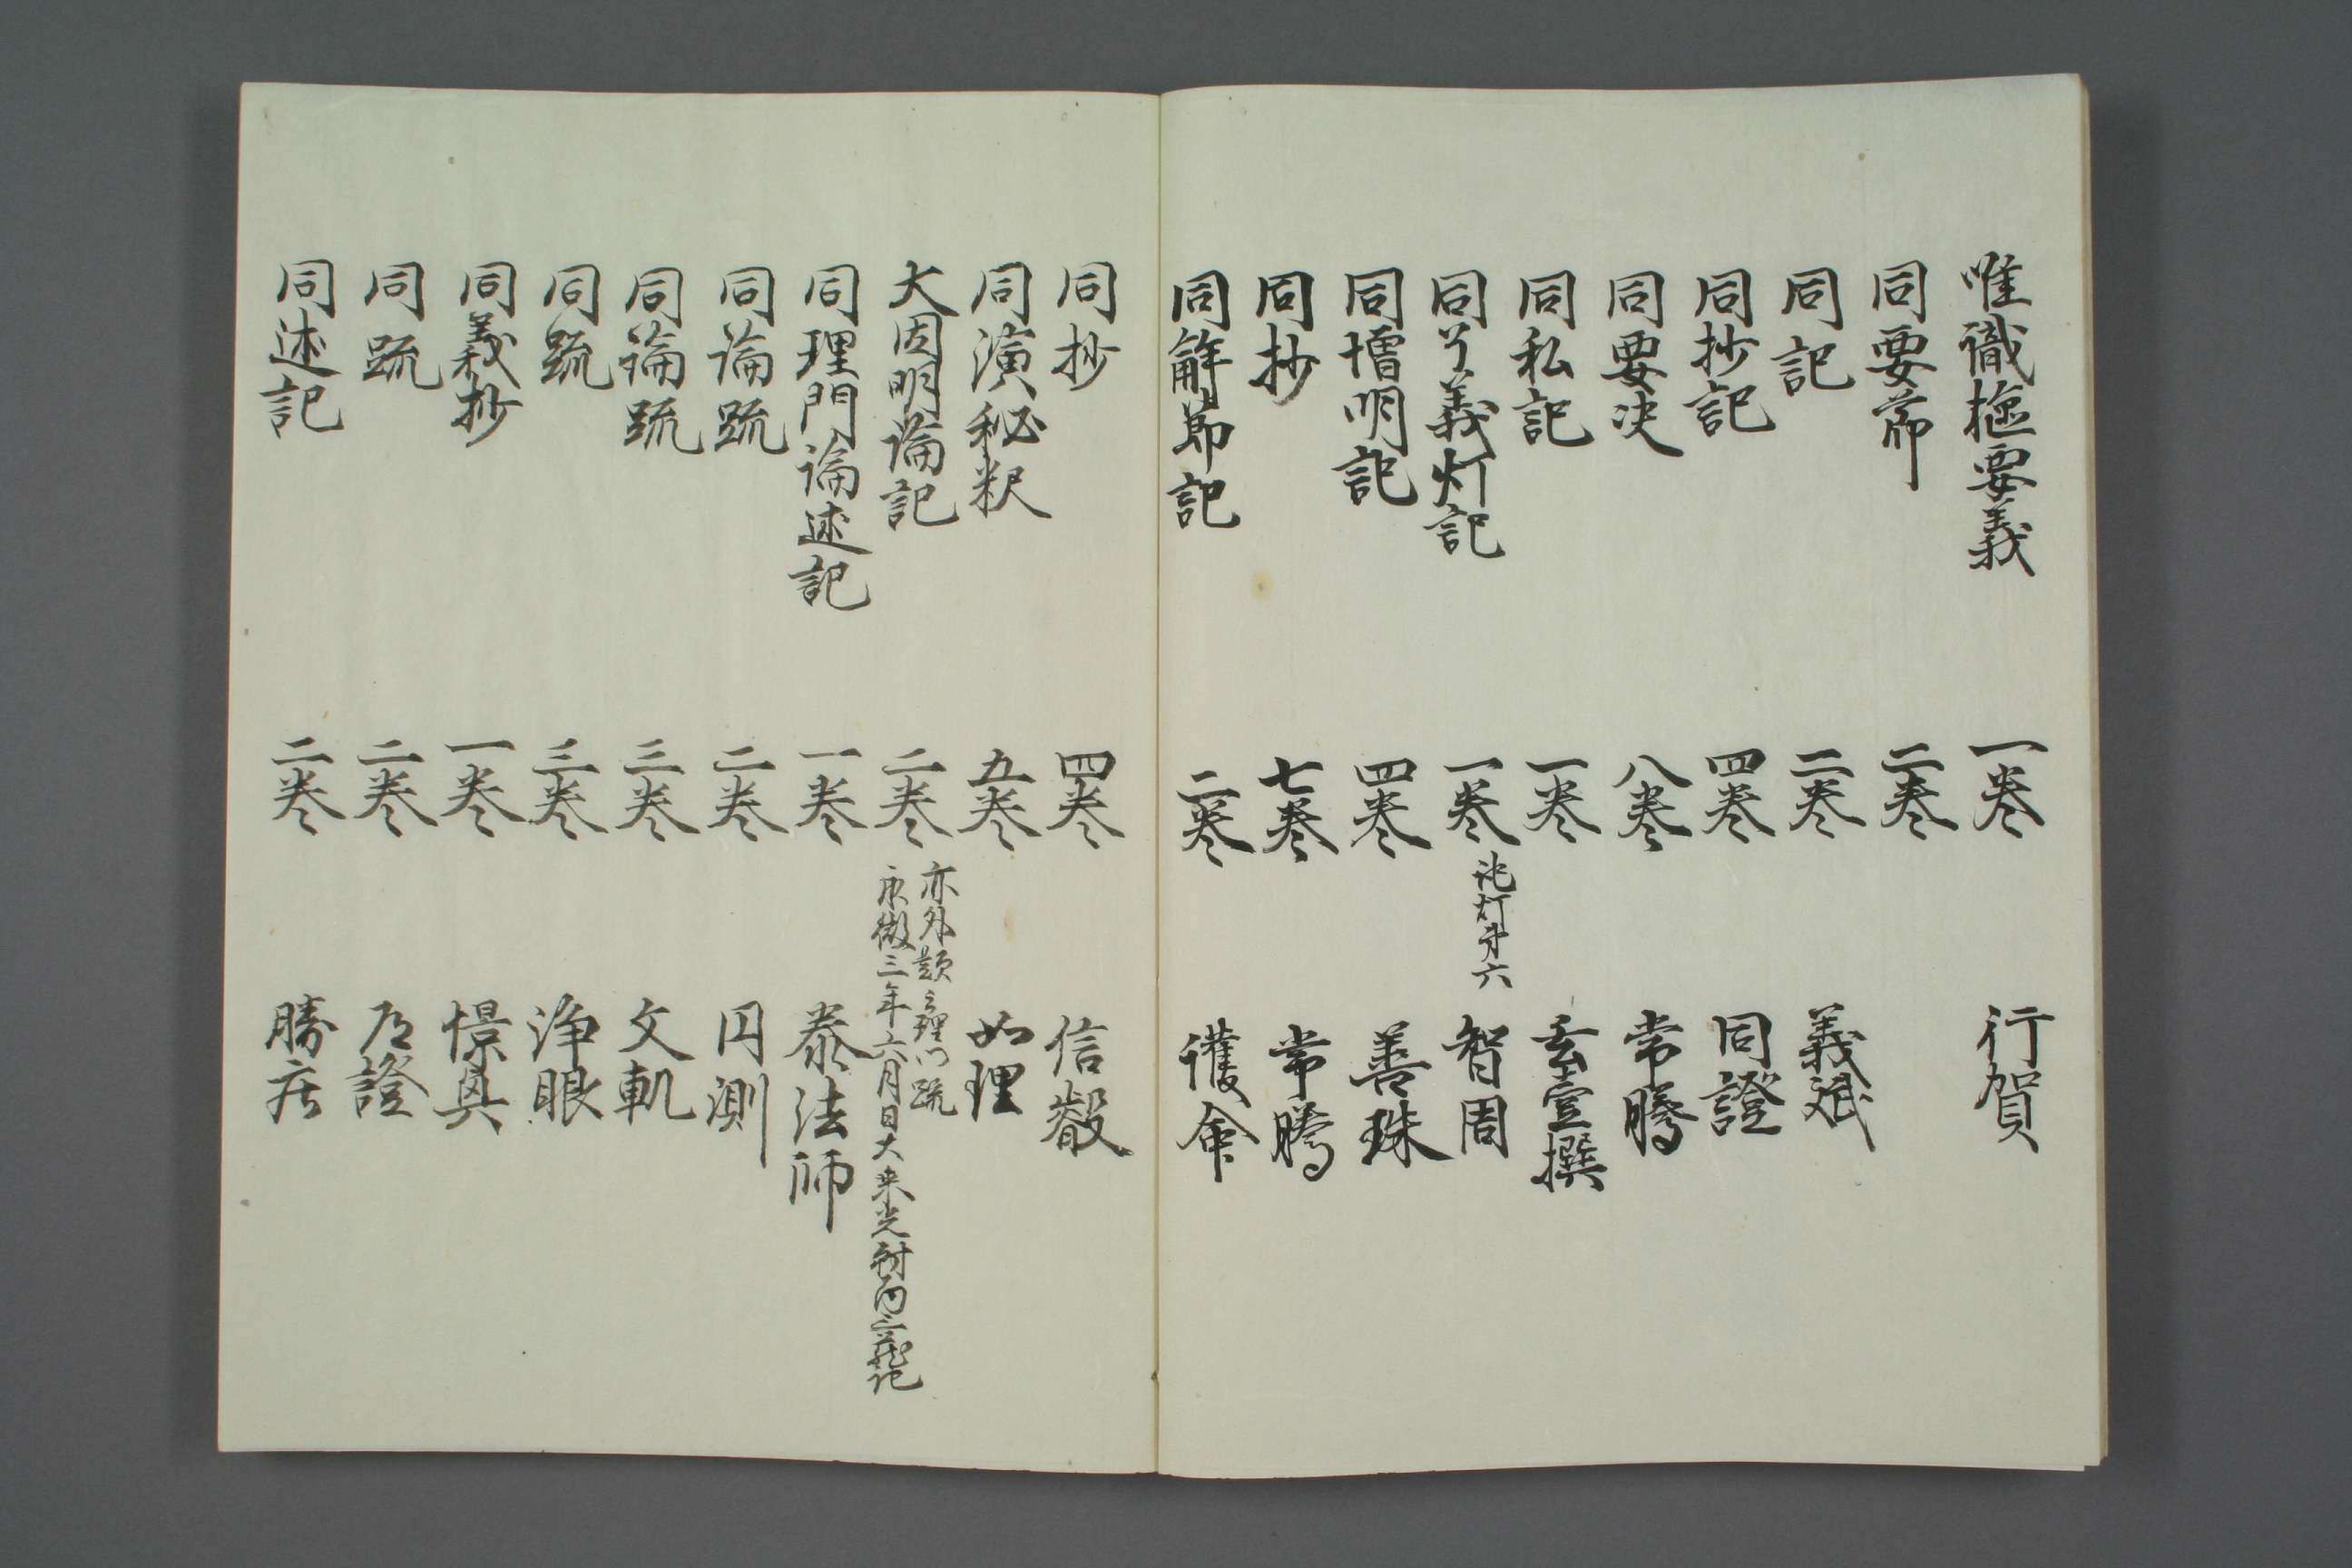 唯識樞要義 一巻 行賀
同要節 二巻
同記 二巻 義斌
同抄記 四巻 同證
同要决 八巻 常騰
同私記 一巻 玄壹撰
同了義灯記 一巻 灯第六 智周
同憎明記 四巻 善珠
同抄 七巻 常騰
同解節記 二巻 護命
同抄 四巻 信叡
同演秘釈 五巻 如理
大因明論記 二巻 亦外題云理門疏
永徽三年六月日大乗光
同理門論述記 一巻 泰法師
同論疏 二巻 円測
同論疏 三巻 文軌
同疏 三巻 浄眼
同義抄 一巻 憬興
同疏 二巻 元證
同述記 二巻 勝庄